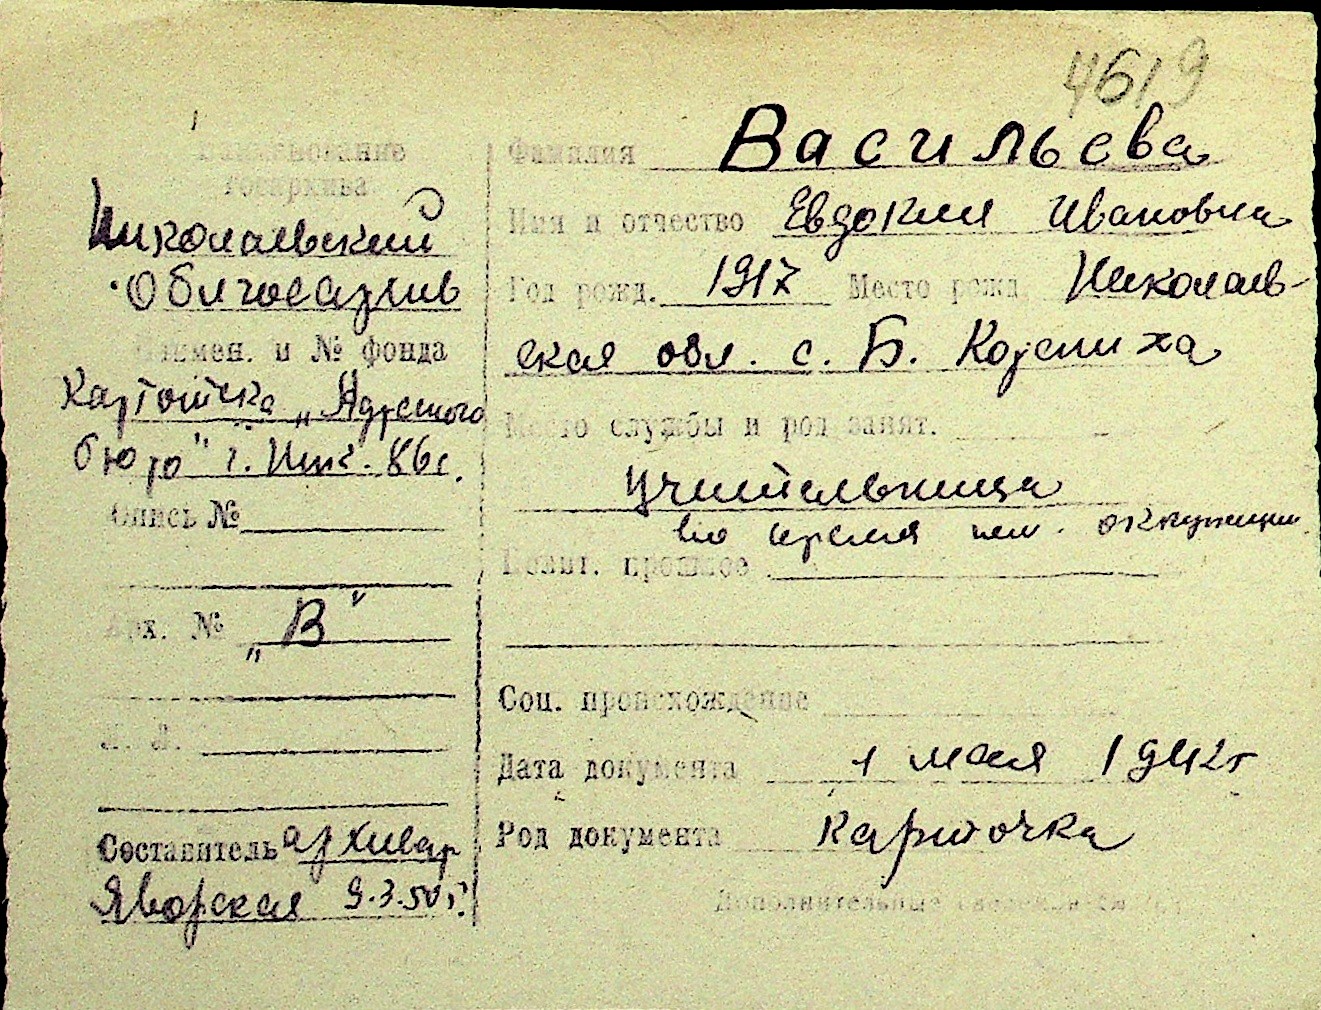 4619
Наименование
госархива
Николаевский
Облгосархив
Наимен. и № фонда
Картотека „Адресного
бюро" г. Ник. 86 с.
Опись №
Арх. № „В"
Л. Л.
Составитель архивар
Яворская 9.3.50 г.
Фамилия Васильева
Имя и отчество Евдокия Ивановна
Год рожд. 1917 Место рожд. Николаев-
ская обл. с. Б. Корениха
Место службы и род занят.
учительница
во время нем. оккупации
Полит. прошлое
Соц. происхождение
Дата документа 1 мая 1942 г
Род документа карточка
Дополнительные сведения на